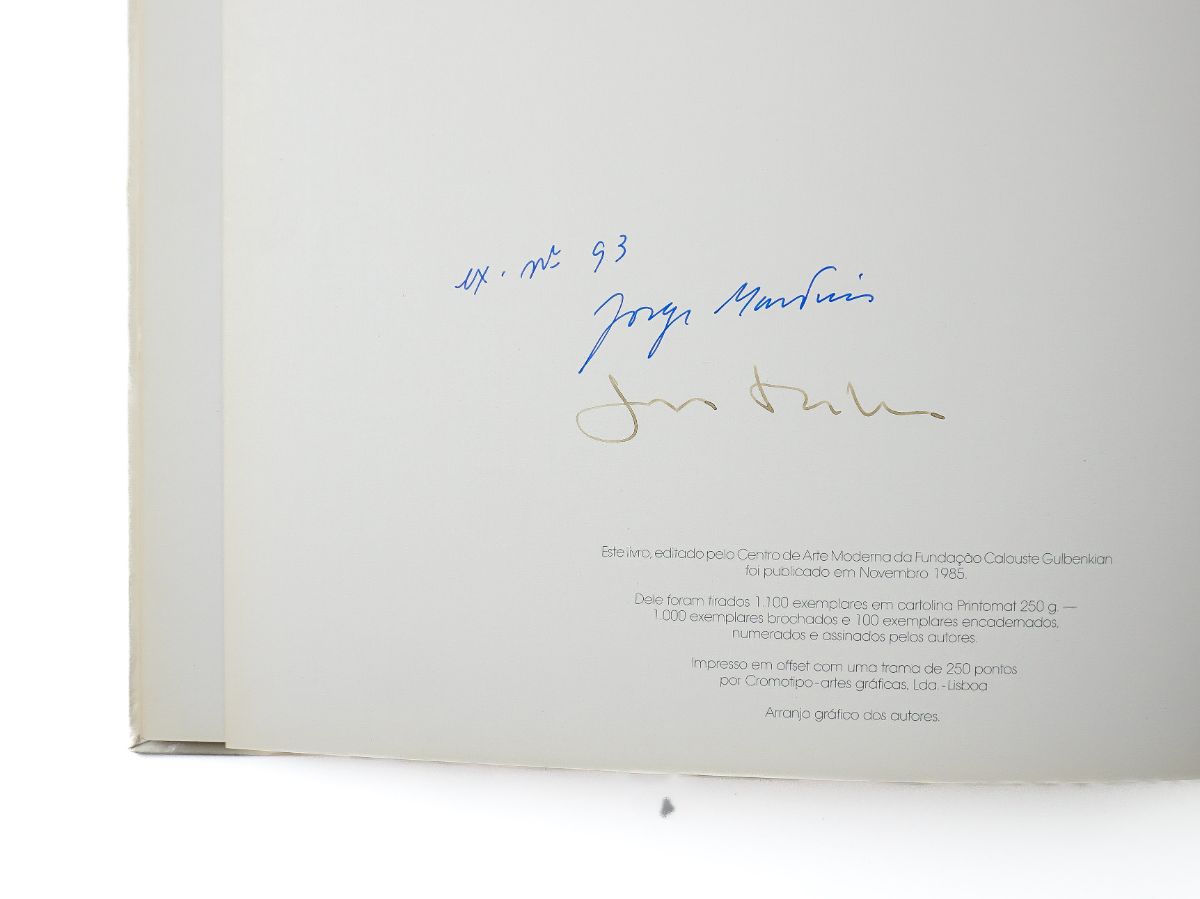 ex. nº 93
Jorge Martins
Este livro, editado pelo Centro de Arte Moderna da Fundação Calouste Gulbenkian
foi publicado em Novembro 1985.
Dele foram tirados 1.100 exemplares em cartolina Printomat 250 g. —
1.000 exemplares brochados e 100 exemplares encadernados,
numerados e assinados pelos autores.
Impresso em offset com uma trama de 250 pontos
por Cromotipo-artes gráficas, Lda.-Lisboa
Arranjo gráfico dos autores.